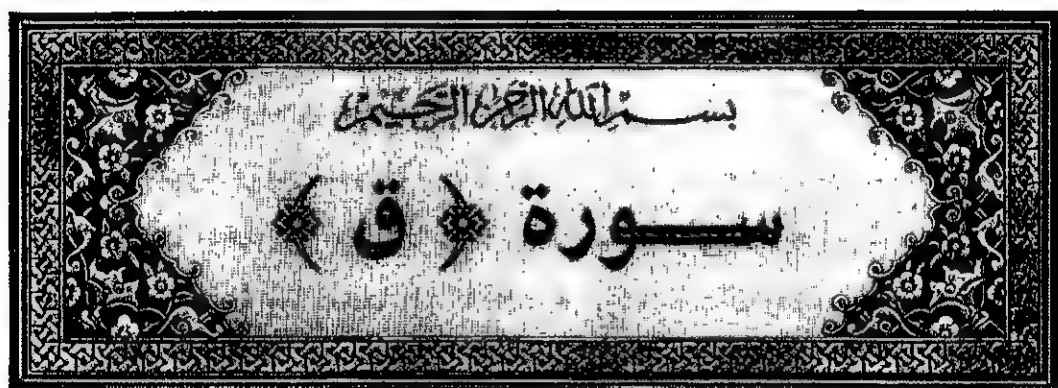 بسم الله الرحمن الرحيم
سورة ﴿ ق ﴾